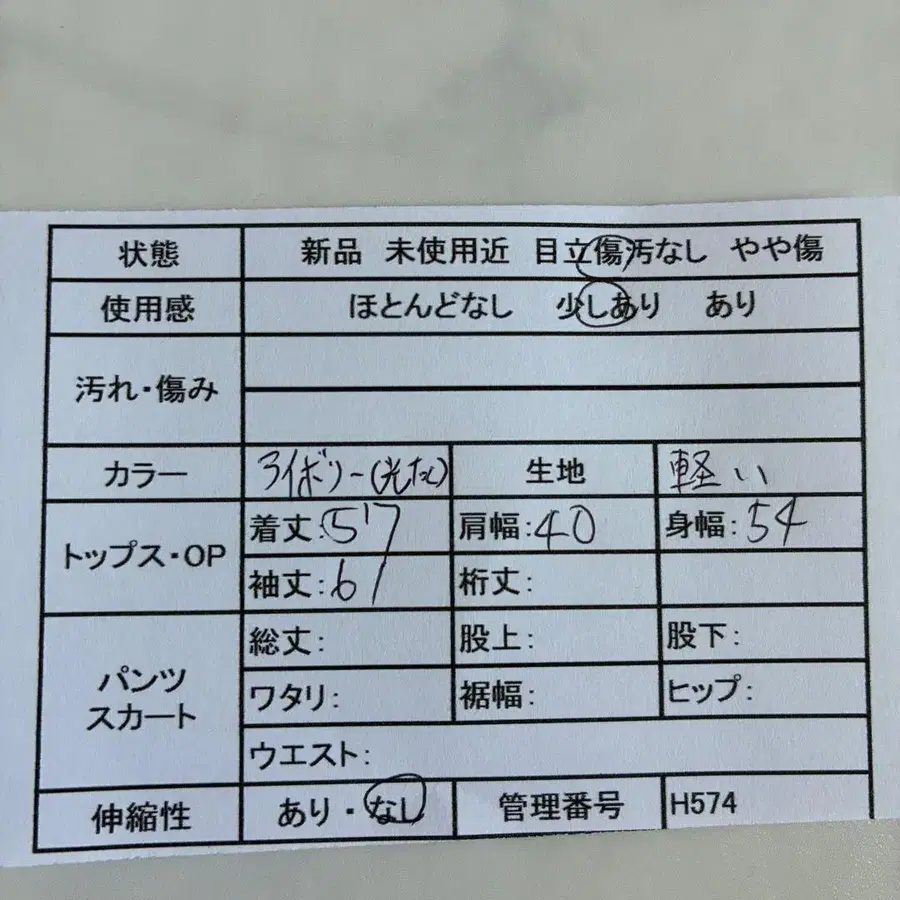 状態 新品 未使用近 目立傷汚なし やや傷
使用感 ほとんどなし 少しあり あり
汚れ・傷み
カラー アイボリー(光たく) 生地 軽い
トップス・OP
着丈:57 肩幅:40 身幅:54
袖丈:61 裄丈:
パンツ
スカート
総丈: 股上: 股下:
ワタリ: 裾幅: ヒップ:
ウエスト:
伸縮性 あり・なし 管理番号 H574